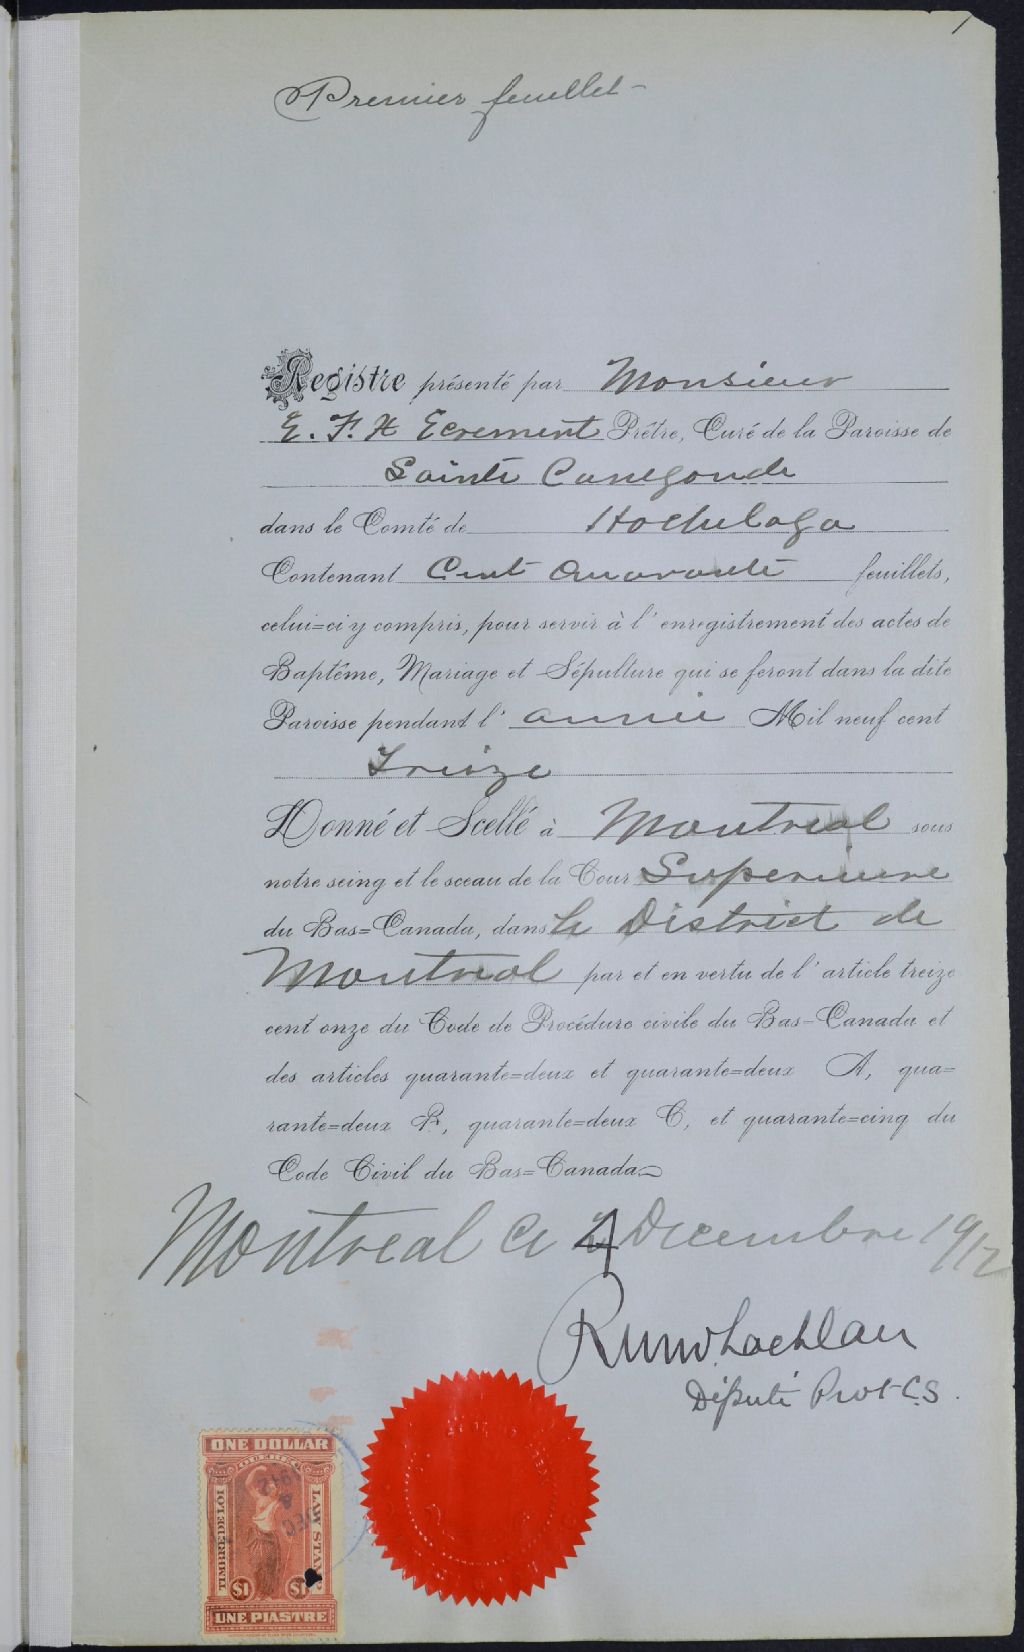 1
Premier feuillet -
Registre présenté par Monsieur
E. F. H Ecrement Prêtre, Curé de la Paroisse de
Sainte Cunegonde
dans le Comté de Hochelaga
Contenant Cent Quarante feuillets,
celui=ci y compris, pour servir à l'enregistrement des actes de
Baptême, Mariage et Sépulture qui se feront dans la dite
Paroisse pendant l'année Mil neuf cent
Treize
Donné et Scellé à Montreal sous
notre seing et le sceau de la Cour Superieure
du Bas=Canada, dans le District de
Montreal par et en vertu de l'article treize
cent onze du Code de Procédure civile du Bas=Canada et
des articles quarante=deux et quarante=deux A, qua=
rante=deux B, quarante=deux C, et quarante=cinq du
Code Civil du Bas=Canada
Montreal ce 4 Decembre 1912
Député Prot C.S.
ONE DOLLAR
QUEBEC
TIMBRE DE LOI
LAW STAMP
DEC 4 1912
$1 $1
UNE PIASTRE